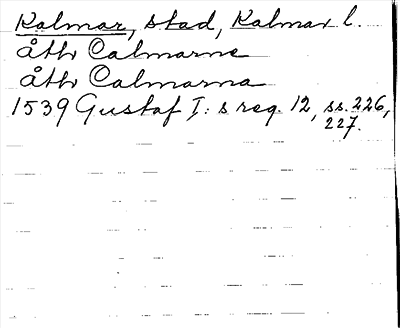 Kalmar, stad, Kalmar l.
åth Calmarne
åth Calmarna
1539 Gustaf I: s reg. 12, ss. 226,
227.